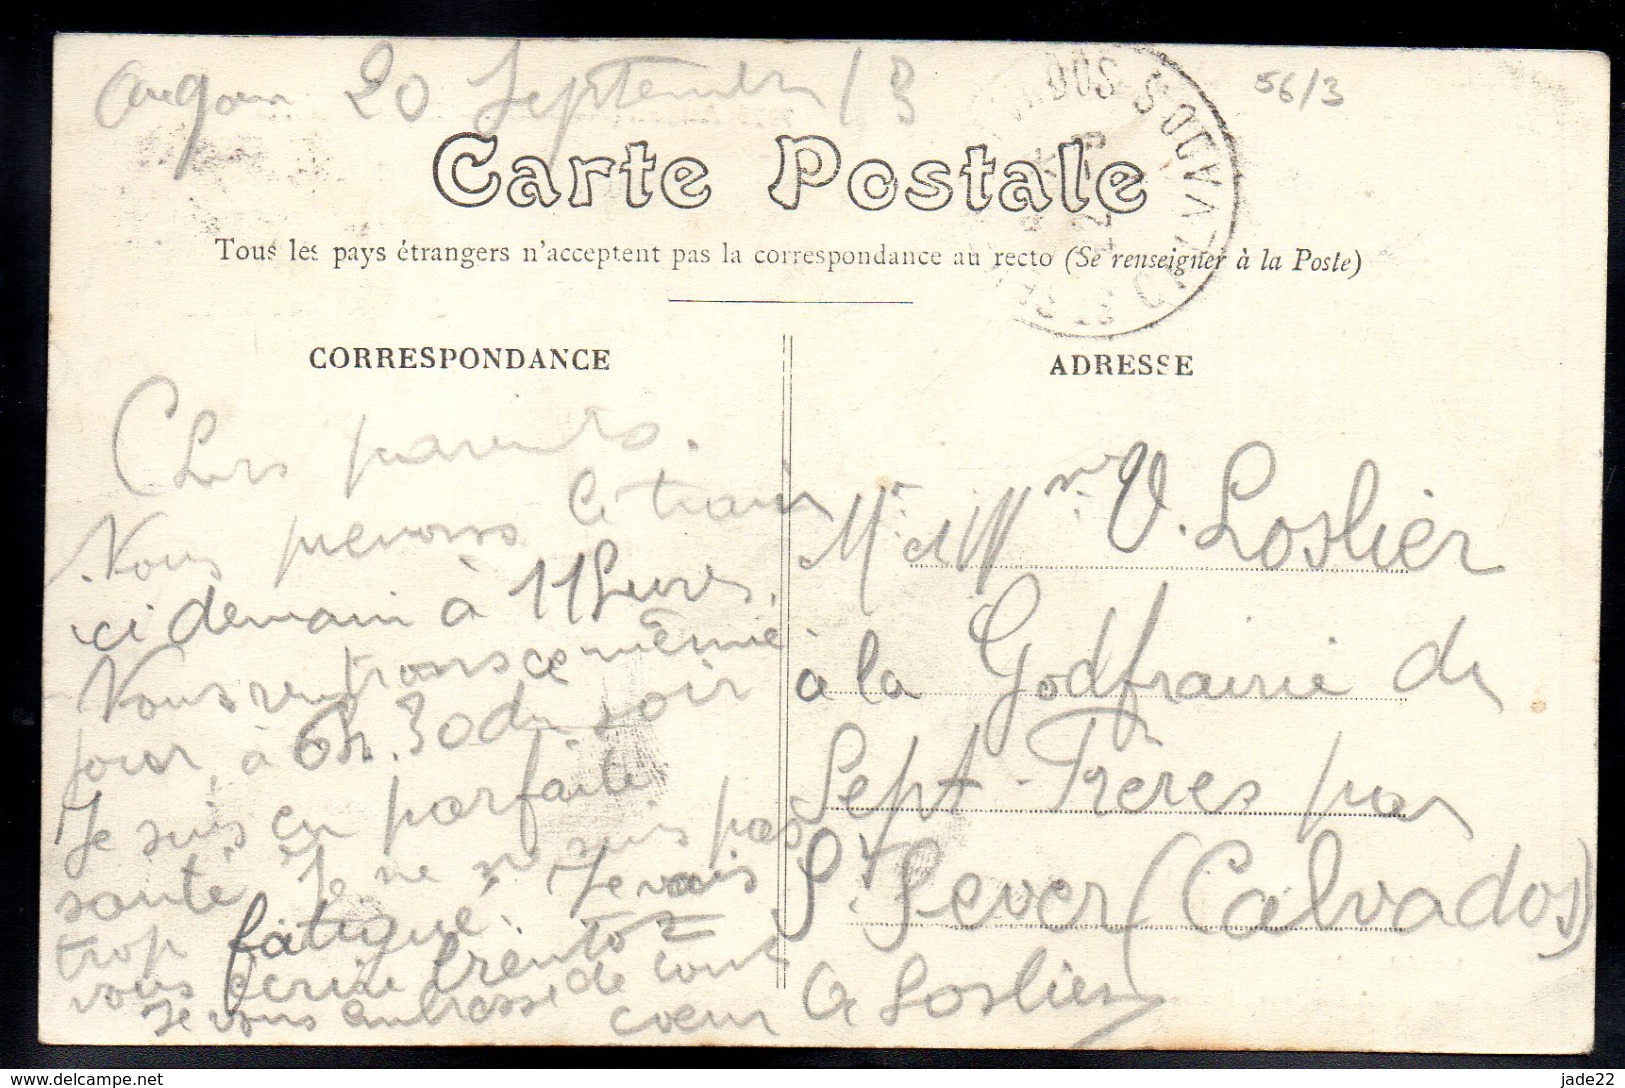 20 Septembre 13
56/3
Carte Postale
Tous les pays étrangers n'acceptent pas la correspondance au recto (Se renseigner à la Poste)
CALVADOS ST SEVER CALVADOS
CORRESPONDANCE
ADRESSE
Chers parents.
Nous prenons le train
ici demain à 11 heures.
Nous rentrons ce même
jour, à 6h.30 du soir
Je suis en parfaite
santé Je ne suis pas
trop fatigué. Je vais
vous écrire bientôt
Je vous embrasse de tout
cœur
Loslier
Mr. et Mme V. Loslier
à la Godfrairie de
Sept-Frères par
St Sever (Calvados)
delcampe.net
jade22